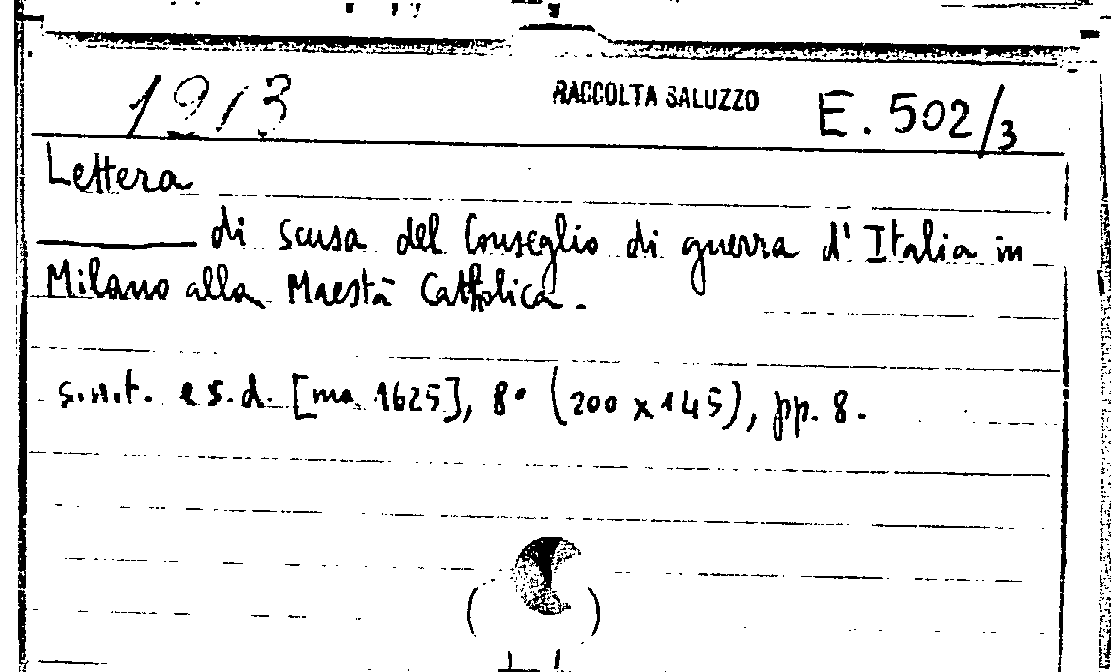 1913 RACCOLTA SALUZZO E. 502/3
Lettera
di scusa del Conseglio di guerra d'Italia in
Milano alla Maestà Cattolica.
s.n.t. e s.d. [ma 1625], 8° (200 x 145), pp. 8.